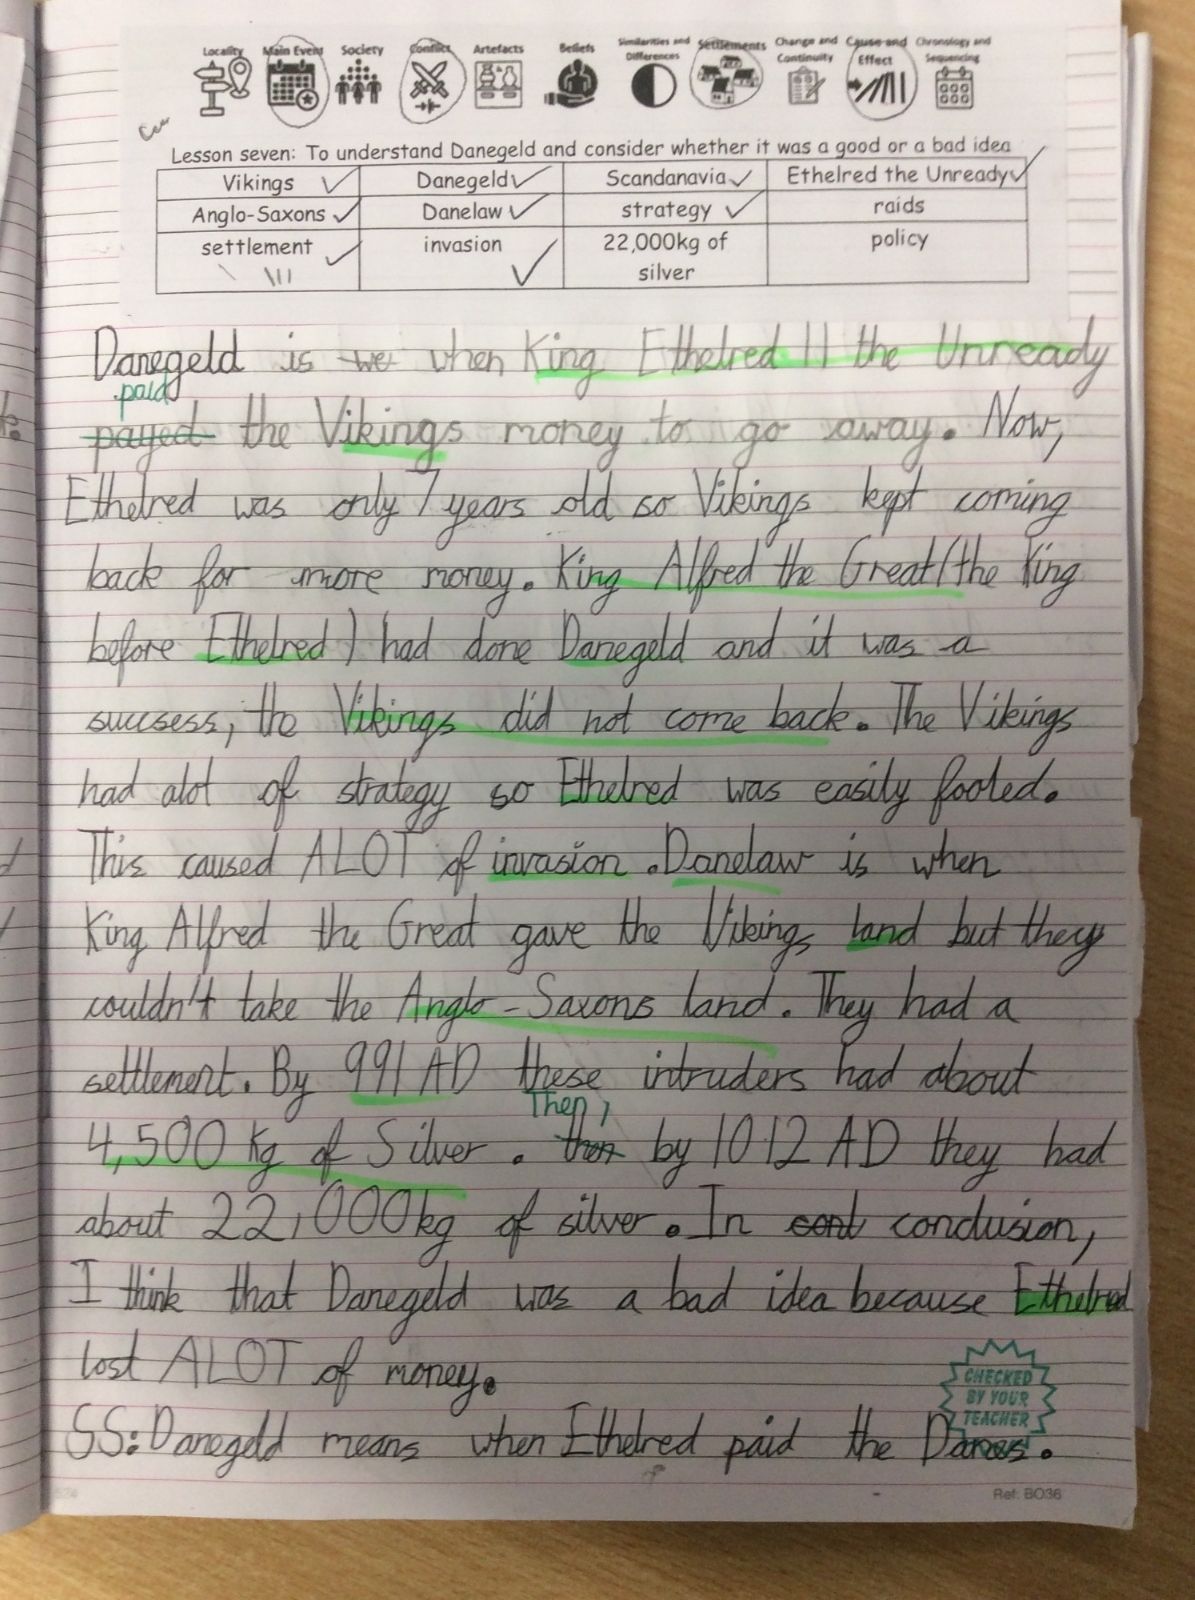 Locality Main Event Society Conflict Artefacts Beliefs Similarities and Differences Settlements Change and Continuity Cause and Effect Chronology and Sequencing
Lesson seven: To understand Danegeld and consider whether it was a good or a bad idea
Vikings Danegeld Scandanavia Ethelred the Unready
Anglo-Saxons Danelaw strategy raids
settlement invasion 22,000kg of silver policy
Danegeld is we when King Ethelred II the Unready
paid
payed the Vikings money to go away. Now,
Ethelred was only 7 years old so Vikings kept coming
back for more money. King Alfred the Great (the King
before Ethelred) had done Danegeld and it was a
succsess, the Vikings did not come back. The Vikings
had alot of strategy so Ethelred was easily fooled.
This caused ALOT of invasion. Danelaw is when
King Alfred the Great gave the Vikings land but they
couldn't take the Anglo-Saxons land. They had a
settlement. By 991 AD these intruders had about
Then,
4,500 Kg of Silver. then by 1012 AD they had
about 22,000kg of silver. In conl conclusion,
I think that Danegeld was a bad idea because Ethelred
lost ALOT of money.
CHECKED
BY YOUR
TEACHER
SS: Danegeld means when Ethelred paid the Danes.
Ref: BO36